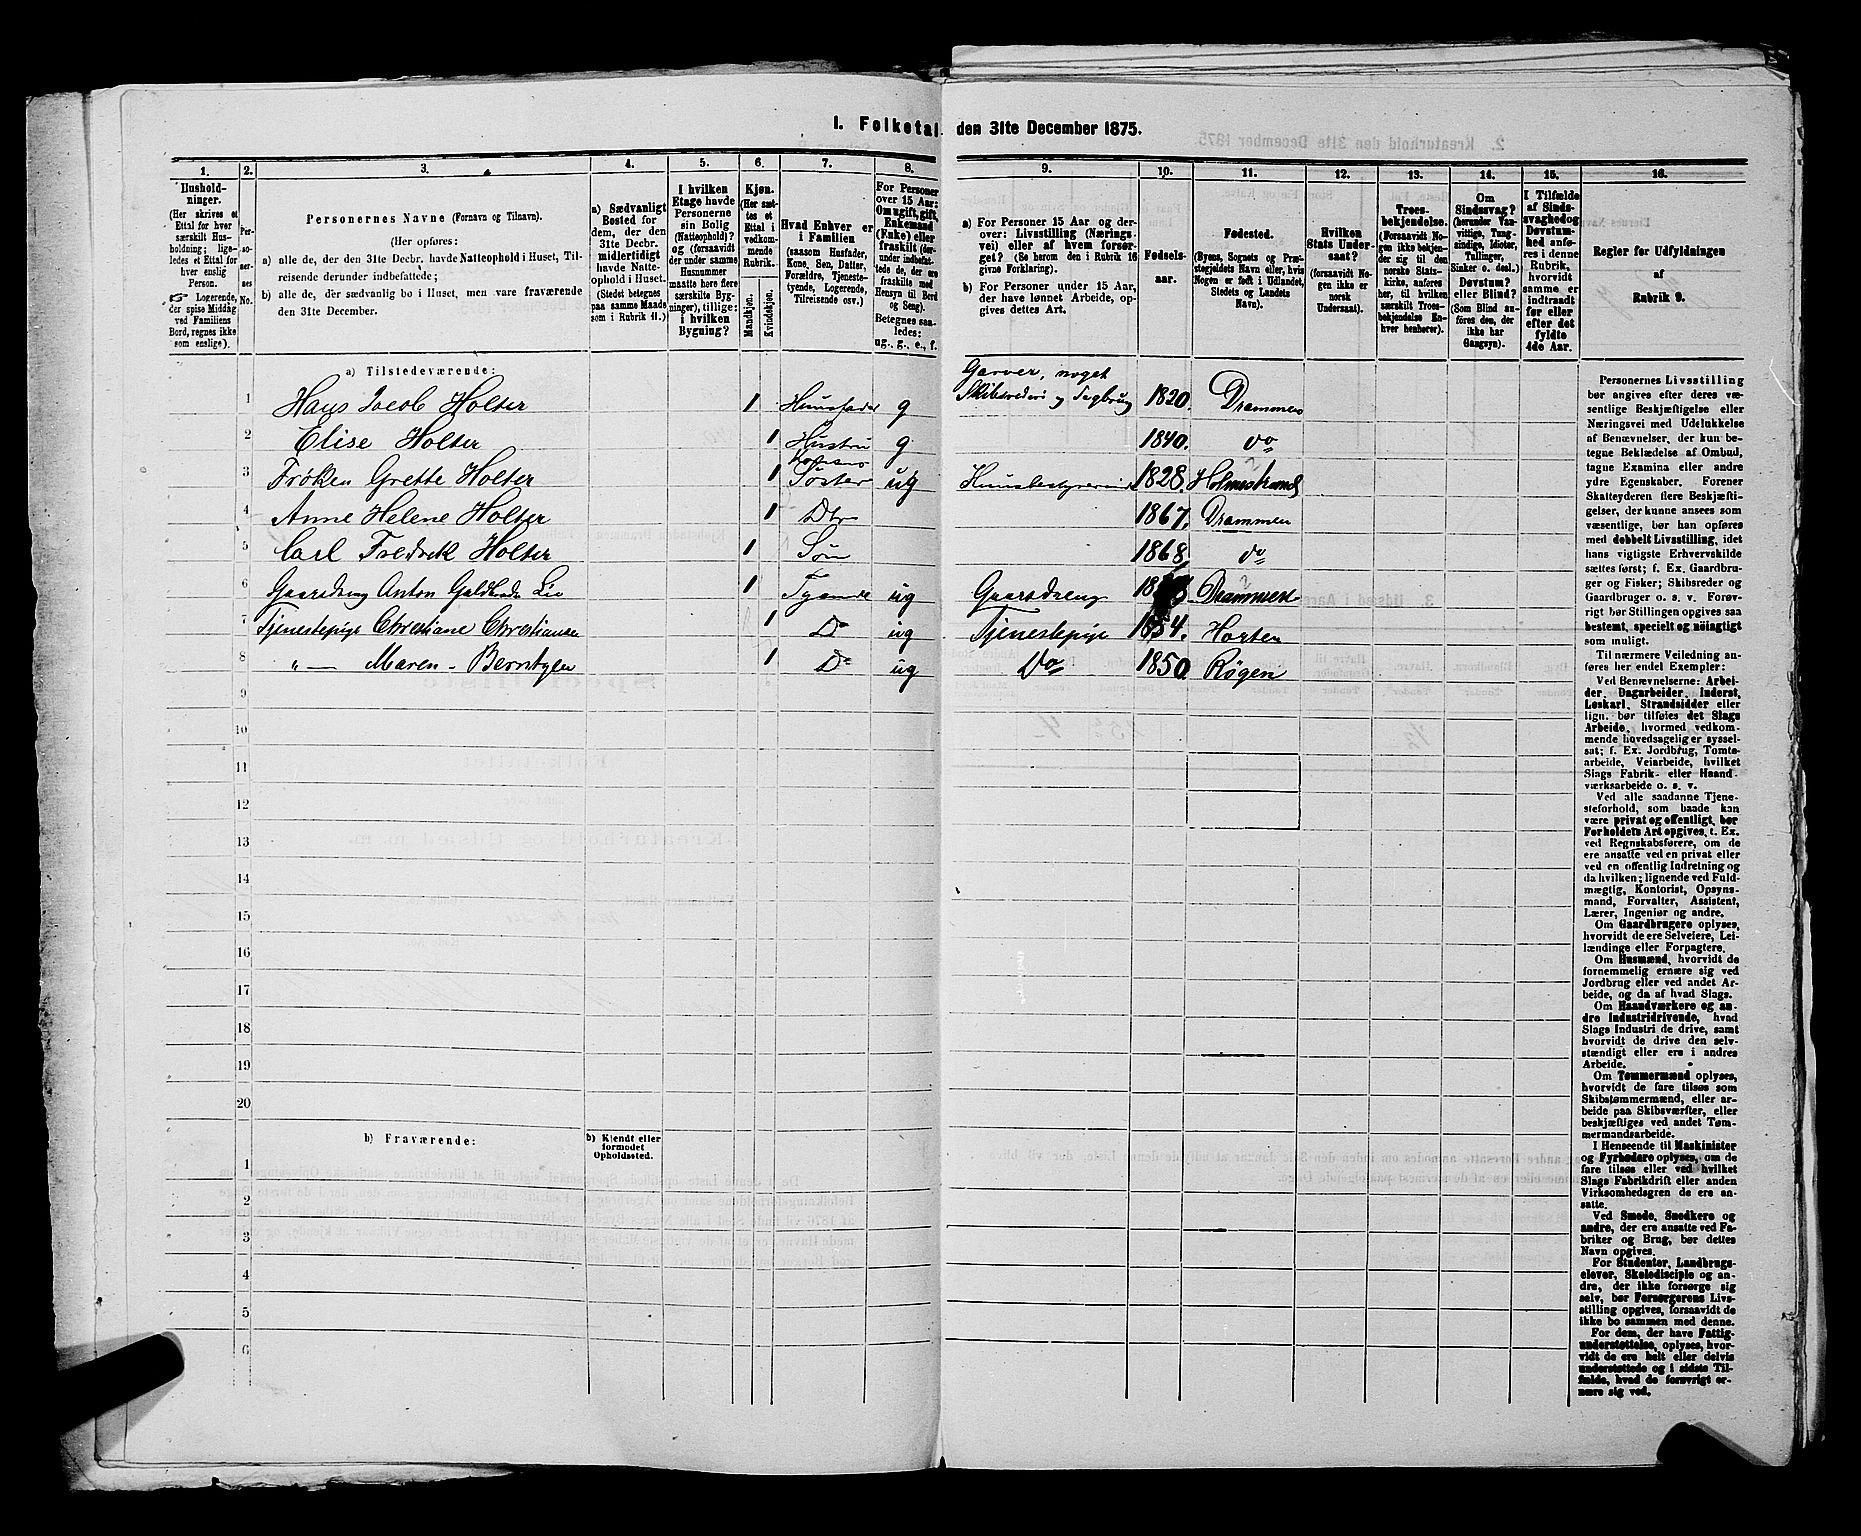 1. Folketal den 31te December 1875.
1. 2. 3. 4. 5. 6. 7. 8. 9. 10. 11. 12. 13. 14. 15. 16.
Hushold-
ninger.
(Her skrives et
Ettal for hver
særskilt Hus-
holdning; lige-
ledes et Ettal for
hver enslig
Person.
☞ Logerende,
der spise Middag
ved Familiens
Bord, regnes ikke
som enslige).
Per-
so-
ner-
nes
No.
Personernes Navne (Fornavn og Tilnavn).
(Her opføres:
a) alle de, der den 31te Decbr. havde Natteophold i Huset, Til-
reisende derunder indbefattede;
b) alle de, der sædvanlig bo i Huset, men vare fraværende
den 31te December.
a) Sædvanligt
Bosted for
dem, der den
31te Decbr.
midlertidigt
havde Natte-
ophold i Huset.
(Stedet betegnes
paa samme Maade
som i Rubrik 11.)
I hvilken
Etage havde
Personerne
sin Bolig
(Natteophold)?
og (forsaavidt
der under samme
Husnummer
maatte høre flere
særskilte Byg-
ninger), tillige:
i hvilken
Bygning?
Kjøn.
(Her sæt-
tes et
Ettal i
vedkom-
mende
Rubrik.
Mandkjøn.
Kvindekjøn.
Hvad Enhver er
i Familien
(saasom Husfader,
Kone, Søn, Datter,
Forældre, Tjeneste-
tyende, Logerende,
Tilreisende osv.)
For Personer
over 15 Aar:
Om ugift, gift,
Enkemand
(Enke) eller
fraskilt (før-
under indbefat-
tede de, der ere
fraskilte med
Hensyn til Bord
og Seng).
Betegnes saa-
ledes:
ug., g., e., f.
a) For Personer 15 Aar og der-
over: Livsstilling (Nærings-
vei) eller af hvem forsør-
get? (Se herom den i Rubrik 16
givne Forklaring).
b) For Personer under 15 Aar,
der have lønnet Arbeide, op-
gives dettes Art.
Fødsels-
aar.
Fødested.
(Byens, Sognets og Præ-
stegjeldets Navn eller, hvis
Nogen er født i Udlandet,
Stedets og Landets
Navn).
Hvilken
Stats Under-
saat?
(forsaavidt No-
gen ikke er
norsk
Undersaat).
Troes-
bekjendelse.
(Forsaavidt No-
gen ikke bekjen-
der sig til den
norske Stats-
kirke, anføres
her, til hvilken
særskilt Troes-
bekjendelse En-
hver henhører).
Om
Sindssvag?
(herunder Van-
vittige, Tung-
sindige, Idioter,
Tallinger,
Sinker o. desl.)
Døvstum?
eller Blind?
(Som Blind an-
føres den, der
ikke har
Gangsyn).
I Tilfælde
af Sinds-
svaghed og
Døvstum-
hed anfø-
res i denne
Rubrik,
hvorvidt
samme er
indtraadt
før eller
efter det
fyldte
4de Aar.
Regler for Udfyldningen
af
Rubrik 9.
a) Tilstedeværende:
1 Hans Jacob Holter 1 Huusfader g Garver, noget Skibsrederi og Tegbrug 1820. Drammen
2 Elise Holter 1 Hustru g 1840. do
3 Frøken Grette Holter 1 Søster ug Huusbestyrerinde 1828. Holmestrand
4 Anne Helene Holter 1 Dtr 1867. Drammen
5 Carl Fredrik Holter 1 Søn 1868. do
6 Gaardsdreng Anton Lie 1 Tyende ug Gaardsdreng Drammen
7 Tjenestepige Christiane Christiansen 1 Do ug Tjenestepige 1854. Horten
8 " — Maren 1 Do ug Do 1850. Røgen
9
10
11
12
13
14
15
16
17
18
19
20
b) Fraværende:
b) Kjendt eller
formodet
Opholdssted.
1
2
3
4
5
6
Personernes Livsstilling
bør angives efter deres væ-
sentlige Beskjæftigelse eller
Næringsvei med Udelukkelse
af Benævnelser, der kun be-
tegne Beklædelse af Ombud,
tagne Examina eller andre
ydre Egenskaber. Forener
Skatteyderen flere Beskjæfti-
gelser, der kunne ansees som
væsentlige, bør han opføres
med dobbelt Livsstilling, idet
hans vigtigste Erhvervskilde
sættes først; f. Ex. Gaardbru-
ger og Fisker; Skibsreder og
Gaardbruger o. s. v. Forøv-
rigt bør Stillingen opgives saa
bestemt, specielt og nöiagtigt
som muligt.
Til nærmere Veiledning an-
føres her endel Exempler:
Ved Benævnelserne: Arbei-
der, Dagarbeider, Inderst,
Løskarl, Strandsidder eller
lign. bør tilføies det Slags
Arbeide, hvormed vedkom-
mende hovedsagelig er syssel-
sat; f. Ex. Jordbrug, Tomte-
arbeide, Veiarbeide, hvilket
Slags Fabrik- eller Haand-
værksarbeide o. s. v.
Ved alle saadanne Tjene-
steforhold, som baade kan
være privat og offentligt, bør
Forholdets Art opgives, t. Ex.
ved Regnskabsførere, om de
ere ansatte ved en privat eller
ved en offentlig Indretning og
da hvilken; lignende ved Fuld-
mægtig, Kontorist, Opsyns-
mand, Forvalter, Assistent,
Lærer, Ingeniør og andre.
Om Gaardbrugere oplyses,
hvorvidt de ere Selveiere, Lei-
lændinge eller Forpagtere.
Om Husmænd, hvorvidt de
fornemmelig ernære sig ved
Jordbrug eller ved andet Ar-
beide, og da af hvad Slags.
Om Haandværkere og an-
dre Industridrivende, hvad
Slags Industri de drive, samt
hvorvidt de drive den selv-
stændigt eller ere i andres
Arbeide.
Om Tømmermænd oplyses,
hvorvidt de fare tilsøs som
Skibstømmermænd, eller ar-
beide paa Skibsværfter, eller
beskjæftiges ved andet Tøm-
mermandsarbeide.
I Henseende til Maskinister
og Fyrbødere oplyses, om de
fare tilsøs eller ved hvilket
Slags Fabrikdrift eller anden
Virksomhedsgren de ere an-
satte.
Ved Smede, Snedkere og
andre, der ere ansatte ved Fa-
briker og Brug, bør dettes
Navn opgives.
For Studenter, Landbrugs-
elever, Skoledisciple og an-
dre, der ikke forsørge sig
selv, bør Forsørgerens Livs-
stilling opgives, forsaavidt de
ikke bo sammen med denne.
For dem, der have Fattig-
understøttelse, oplyses, hvor-
vidt de ere helt eller delvis
understøttede og i sidste Til-
fælde, hvad de forøvrigt er-
nære sig ved.